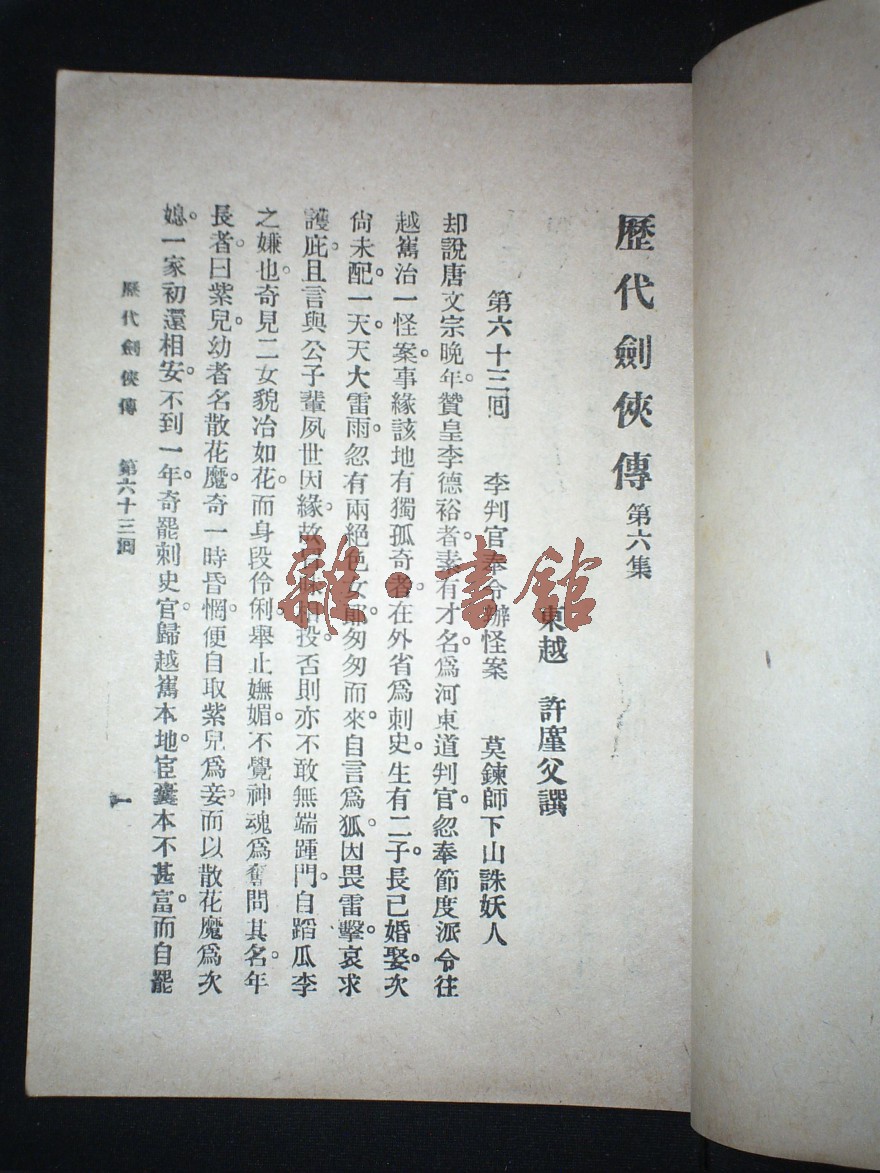 歷代劍俠傳 第六集
東越 許廑父譔
第六十三回 李判官奉令辦怪案 莫鍊師下山誅妖人
却說唐文宗晚年。贊皇李德裕者。素有才名。爲河東道判官。忽奉節度派令往
越嶲治一怪案。事緣該地有獨孤奇者。在外省爲刺史。生有二子。長已婚娶。次
尙未配。一天。天大雷雨。忽有兩絕色女郎匆匆而來。自言爲狐。因畏雷擊。哀求
護庇。且言與公子輩夙世因緣。故投。否則亦不敢無端踵門。自蹈瓜李
之嫌也。奇見二女貌冶如花。而身段伶俐。舉止嫵媚。不覺神魂爲奮。問其名。年
長者。曰紫兒。幼者名散花魔。奇一時昏惘。便自取紫兒爲妾。而以散花魔爲次
媳。一家初還相安。不到一年。奇罷刺史官。歸越嶲本地。宦囊本不甚富。而自罷
歷代劍俠傳 第六十三回
一
雜·書館